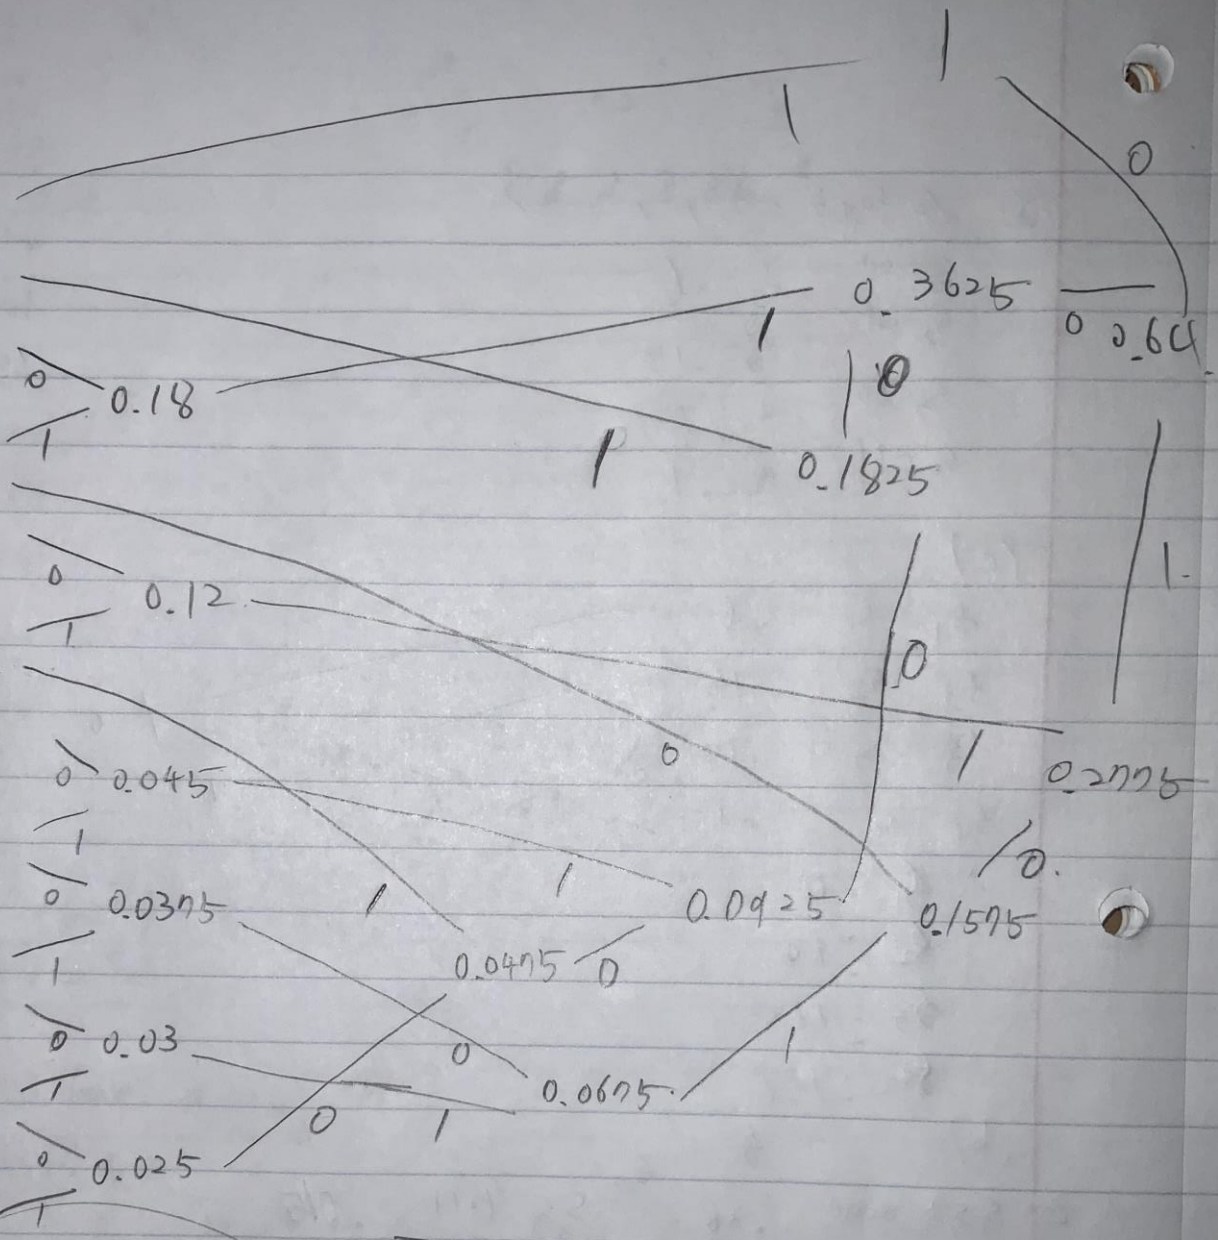 1
1
0
0.3625
0 0.64
1
0
0 0.18
1
1
0.1825
0 0.12
1
0
1
0
1
0.2775
0 0.045
1
1
1
0.0925
0
0.1575
0 0.0375
1
0.0475
0
0 0.03
1
0
0.0675
1
0
1
0 0.025
1